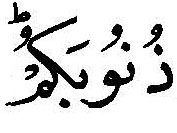 ذُنُوبَكُمْؕ